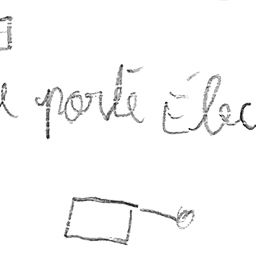 porté Élec